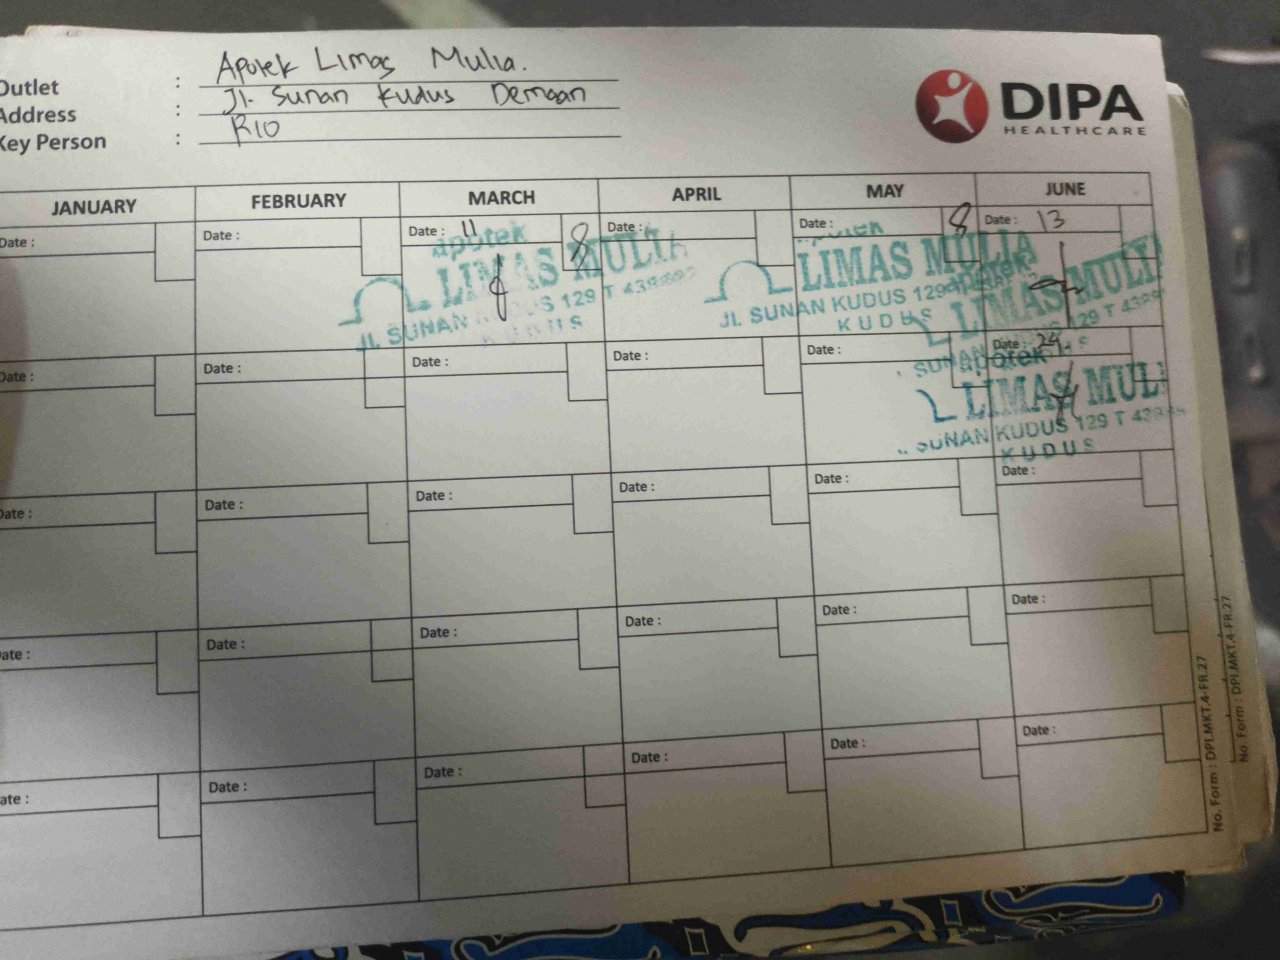 Outlet : Apotek Limas Mulia.
Address : Jl. Sunan Kudus Demaan
Key Person : RIO
DIPA
HEALTHCARE
JANUARY FEBRUARY MARCH APRIL MAY JUNE
Date : Date : Date : 11 8 Date : Date : 8 Date : 13
apotek
LIMAS MULIA
Jl. SUNAN KUDUS 129 T
KUDUS
apotek
LIMAS MULIA
Jl. SUNAN KUDUS 129
KUDUS
apotek
LIMAS MULI
SUNAN 129 T
Date : Date : Date : Date : Date : Date : 24
apotek
LIMAS MULI
SUNAN KUDUS 129 T
KUDUS
Date : Date : Date : Date : Date : Date :
ate : Date : Date : Date : Date : Date :
ate : Date : Date : Date : Date : Date :
No. Form : DPI.MKT.4-FR.27
No. Form : DPI.MKT.4-FR.27